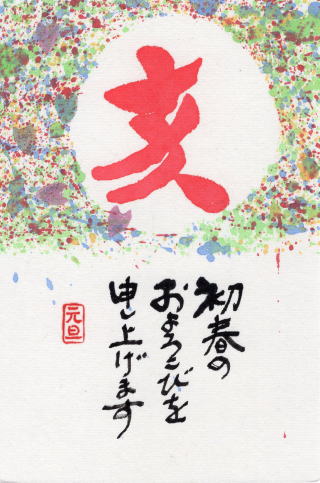 亥
初春の
およろこびを
申し上げます
元旦